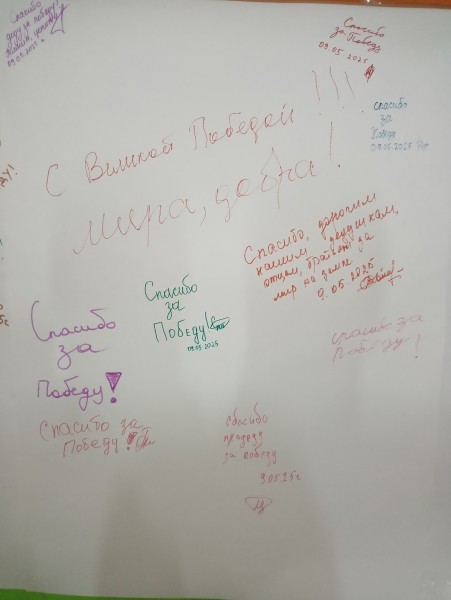 Спасибо
деду за победу!
09.05.2025 г
Спасибо
за Победу
09.05.2025
С Великой Победой !!!
спасибо
за
Победу
09.05.2025
Мира, добра!
Спасибо, дорогим
нашим дедушкам,
отцам, братьям за
мир на земле
9.05.2025
Спасибо
за
Победу!
09.05.2025
Спасибо
за
Победу!
спасибо за
Победу!
Спасибо за
Победу!
Сбасибо
прадеду
за победу
9.05.25г